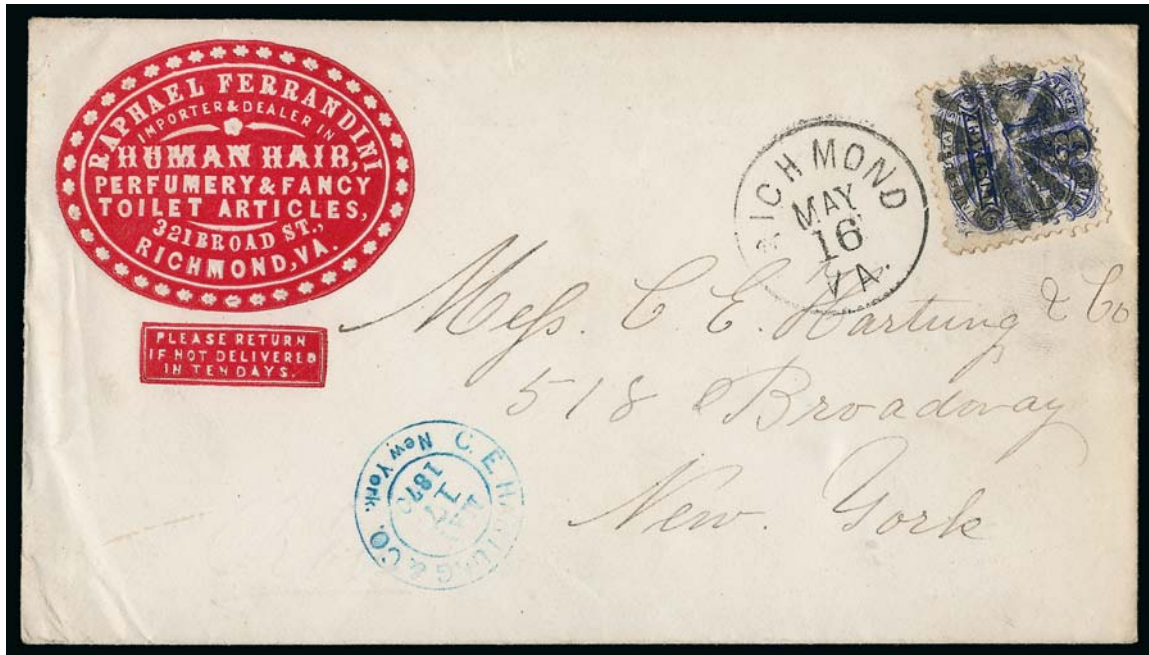 RAPHAEL FERRANDINI
IMPORTER & DEALER IN
HUMAN HAIR,
PERFUMERY & FANCY
TOILET ARTICLES,
321 BROAD ST.,
RICHMOND, VA.
PLEASE RETURN
IF NOT DELIVERED
IN TEN DAYS.
RICHMOND
MAY
16
VA.
Mess. C. E. Hartung & Co
518 Broadway
New. York
C. E. HARTUNG & CO.
New York.
17
1870
3